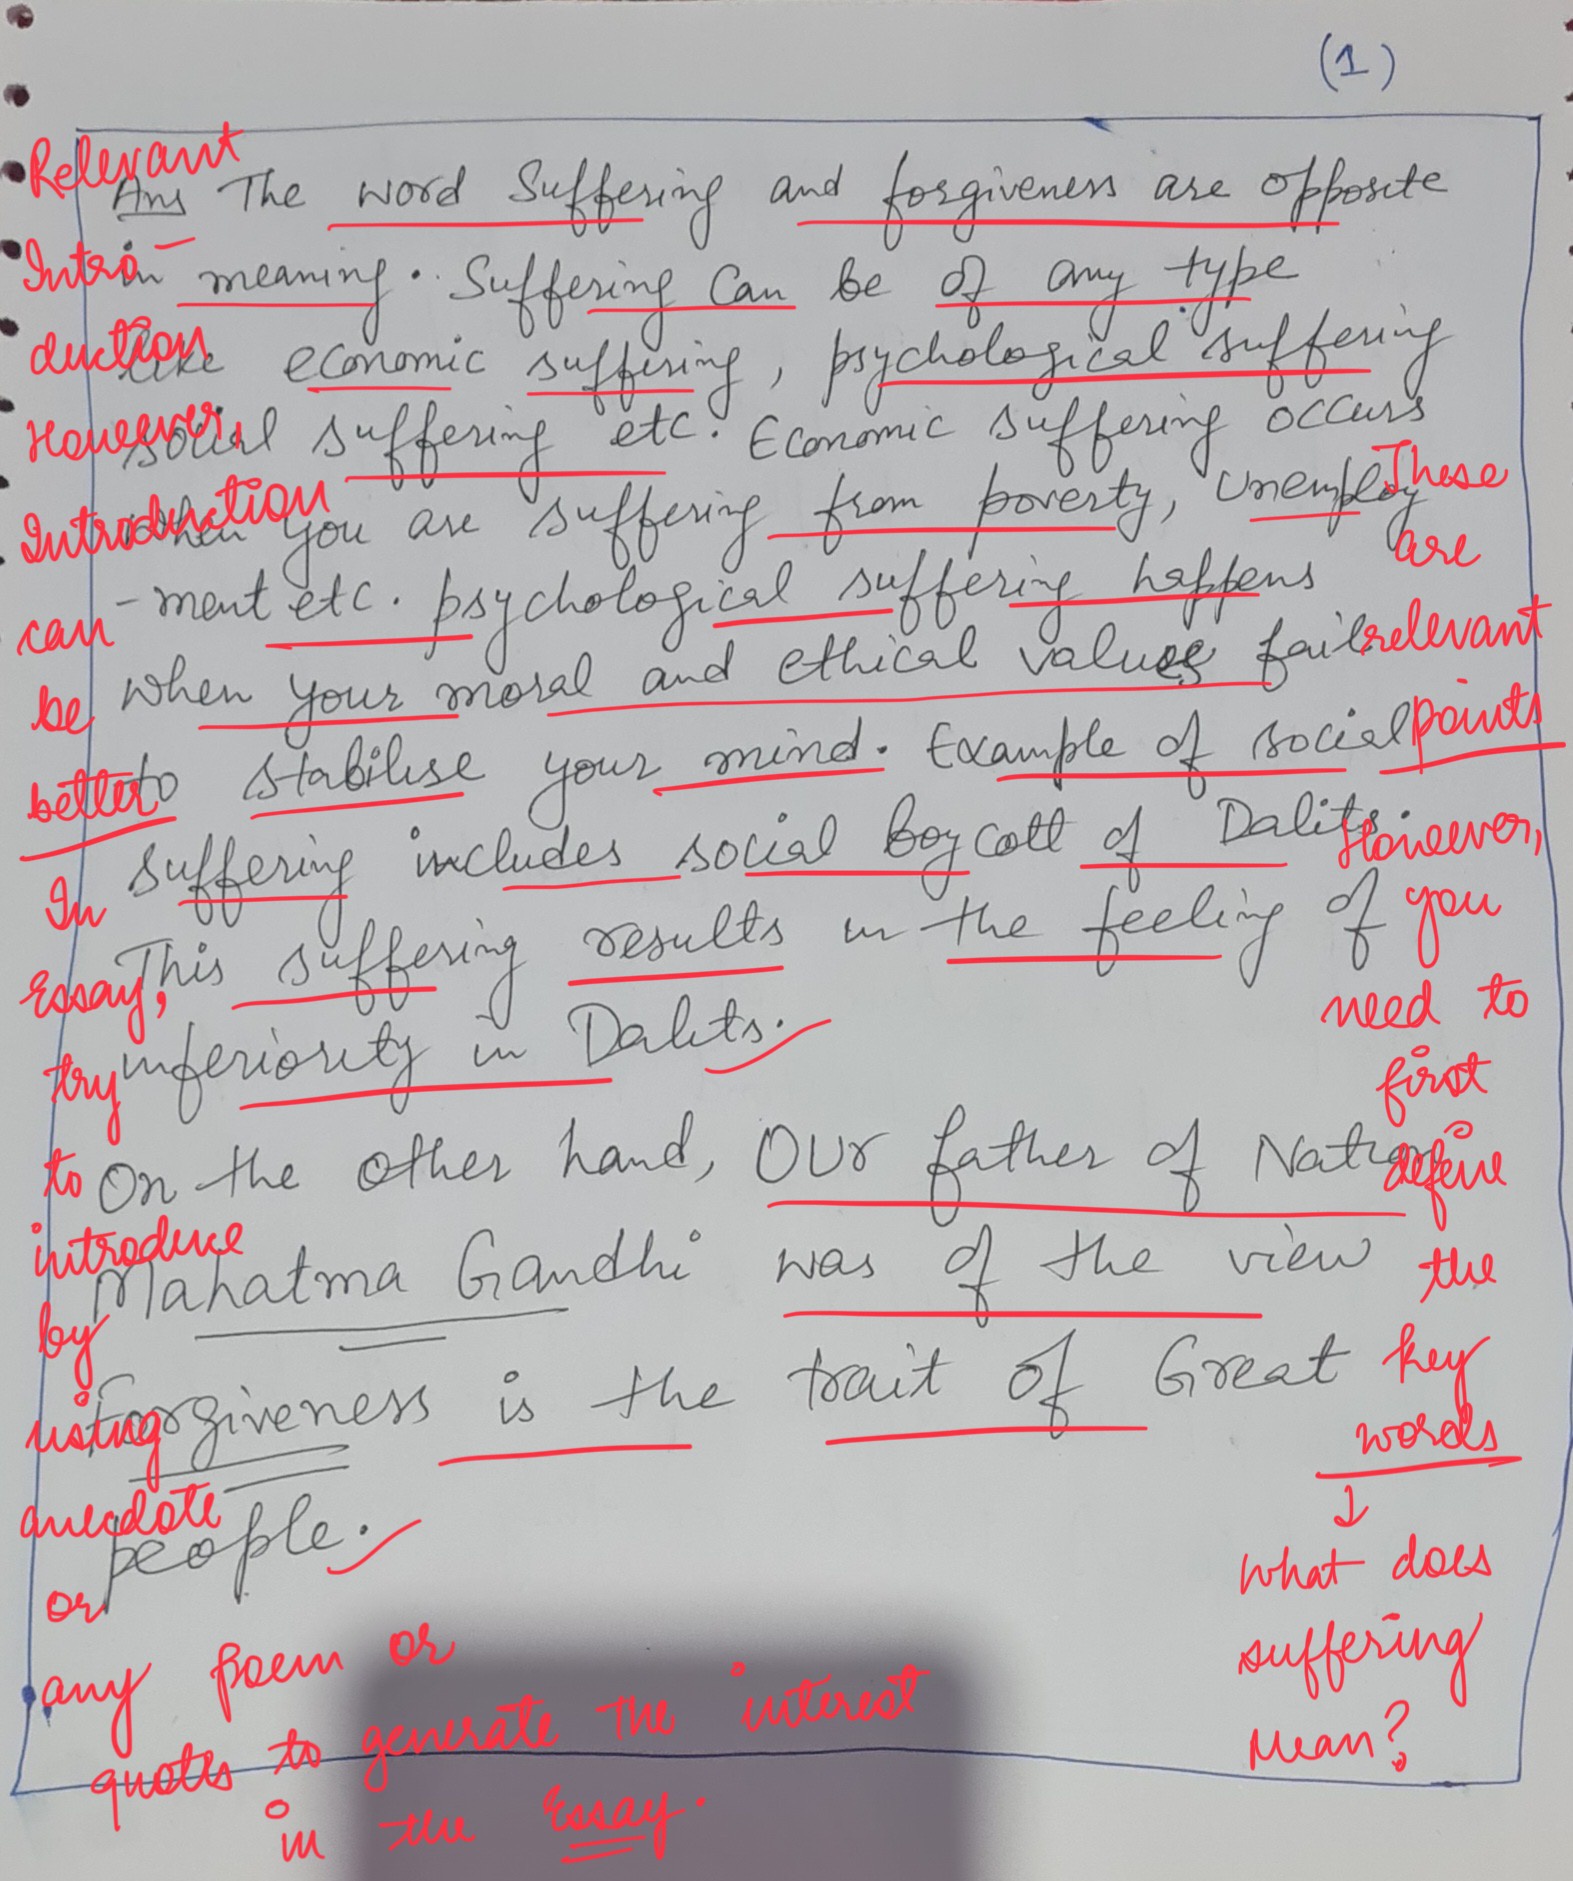 (1)
Ans The word Suffering and forgiveness are opposite
in meaning. Suffering Can be of any type
like economic suffering, psychological suffering
social suffering etc. Economic suffering occurs
when you are suffering from poverty, Unemploy
-ment etc. psychological suffering happens
when your moral and ethical values fail
to stabilise your mind. Example of social
suffering includes social boycott of Dalits.
This suffering results in the feeling of
inferiority in Dalits.
On the other hand, Our father of Nation
Mahatma Gandhi was of the view
Forgiveness is the trait of Great
people.
Relevant
Intro-
duction
However,
Introduction
can
be
better
In
Essay,
try
to
introduce
by
using
anecdote
or
any poem or
quotes to generate the interest
in the Essay.
These
are
relevant
points
However,
you
need to
first
define
the
key
words
↓
what does
suffering
mean?